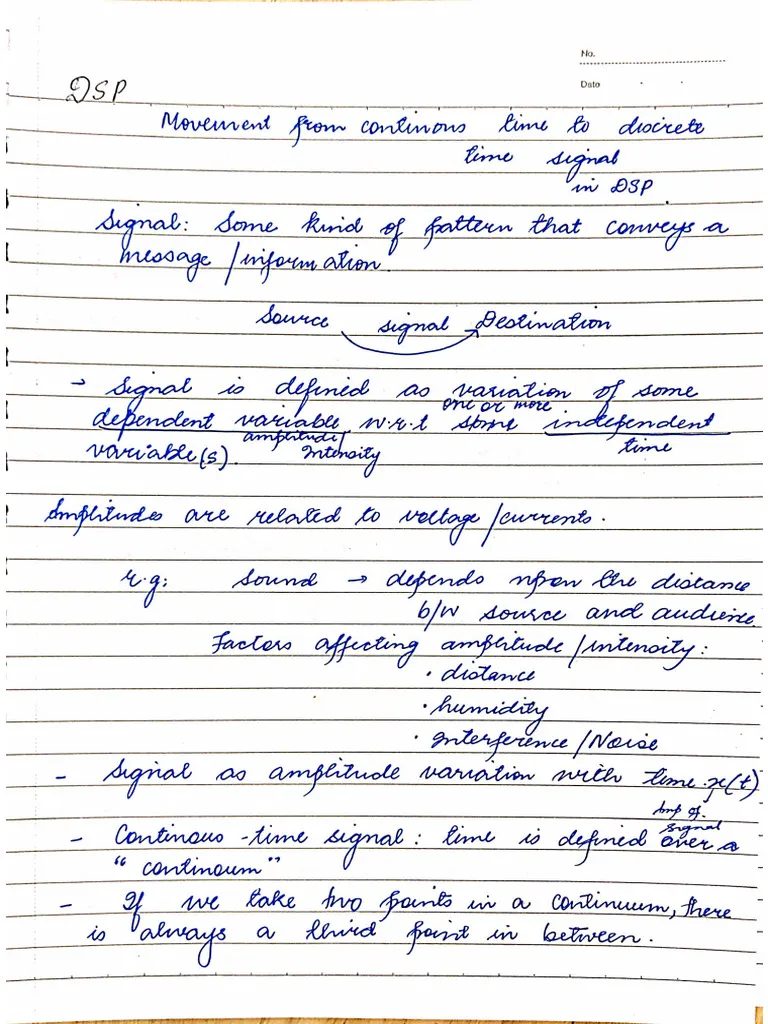 No.
Date
DSP
Movement from continous time to discrete
time signal
in DSP.
Signal: Some kind of pattern that conveys a
message/information.
Source signal Destination
→ Signal is defined as variation of some
one or more
dependent variable w.r.t some independent
amplitude/ time
variable(s). Intensity
Amplitudes are related to voltage/currents.
e.g: Sound → depends upon the distance
b/w source and audience.
Factors affecting amplitude/intensity:
· distance
· humidity
· Interference/Noise
- Signal as amplitude variation with time. x(t)
Amp of.
signal
- Continous-time signal: time is defined over a
"continoum"
- If we take two points in a continuum, there
is always a third point in between.